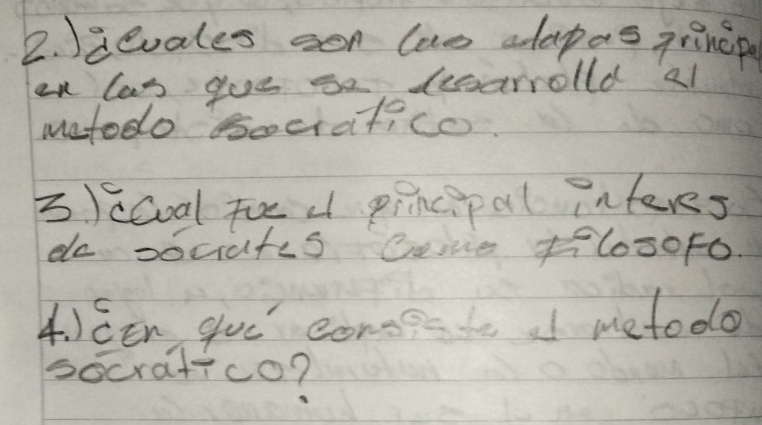 2.) ¿cuales son las etapas principa
en las que se desarrolla el
metodo socratico.
3.) ¿cual fue el principal interes
de sócrates como filosofo.
4.) ¿En qué consiste el metodo
socratico?